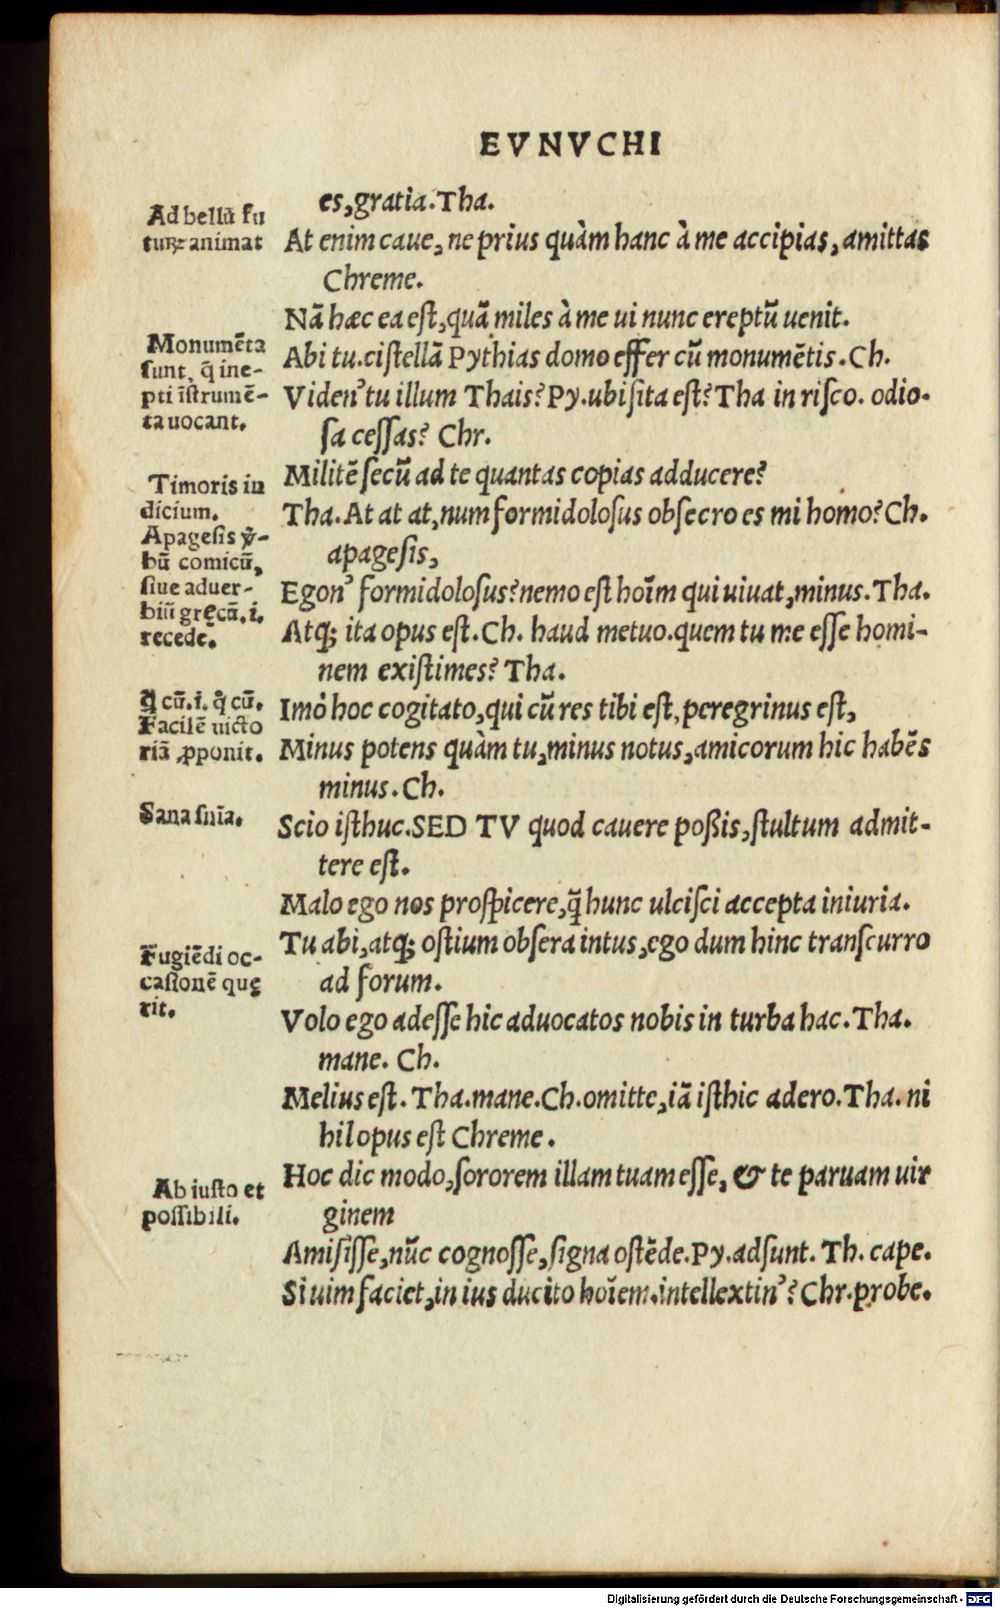 EVNVCHI
es, gratia. Tha.
Ad bellũ fu
turꝫ animat
At enim caue, ne prius quàm hanc à me accipias, amittas
Chreme.
Nã hæc ea est, quã miles à me ui nunc ereptũ uenit.
Monumẽta
sunt, q̃ ine-
pti ĩstrumẽ-
ta uocant.
Abi tu. cistellã Pythias domo effer cũ monumẽtis. Ch.
Viden' tu illum Thais? Py. ubi sita est? Tha in risco. odio-
sa cessas? Chr.
Militẽ secũ ad te quantas copias adducere?
Timoris in
dicium.
Apagesis ꝟ-
bũ comicũ,
siue aduer-
biũ gręcũ. i.
recede.
Tha. At at at, num formidolosus obsecro es mi homo? Ch.
apagesis,
Egon' formidolosus? nemo est hoĩm qui uiuat, minus. Tha.
Atq; ita opus est. Ch. haud metuo. quem tu me esse homi-
nem existimes? Tha.
cũ. i. cũ.
Facilẽ uicto
riã ꝓponit.
Imò hoc cogitato, qui cũ res tibi est, peregrinus est,
Minus potens quàm tu, minus notus, amicorum hic habẽs
minus. Ch.
Sana snĩa.
Scio isthuc. SED TV quod cauere poßis, stultum admit-
tere est.
Malo ego nos prospicere, q̃ hunc ulcisci accepta iniuria.
Fugiẽdi oc-
casionẽ quę
rit.
Tu abi, atq; ostium obsera intus, ego dum hinc transcurro
ad forum.
Volo ego adesse hic aduocatos nobis in turba hac. Tha.
mane. Ch.
Melius est. Tha. mane. Ch. omitte, iã isthic adero. Tha. ni
hil opus est Chreme.
Ab iusto et
possibili.
Hoc dic modo, sororem illam tuam esse, & te paruam uir
ginem
Amisisse, nũc cognosse, signa ostẽde. Py. adsunt. Th. cape.
Si uim faciet, in ius ducito hoĩem. intellextin'? Chr. probe.
Digitalisierung gefördert durch die Deutsche Forschungsgemeinschaft - DFG